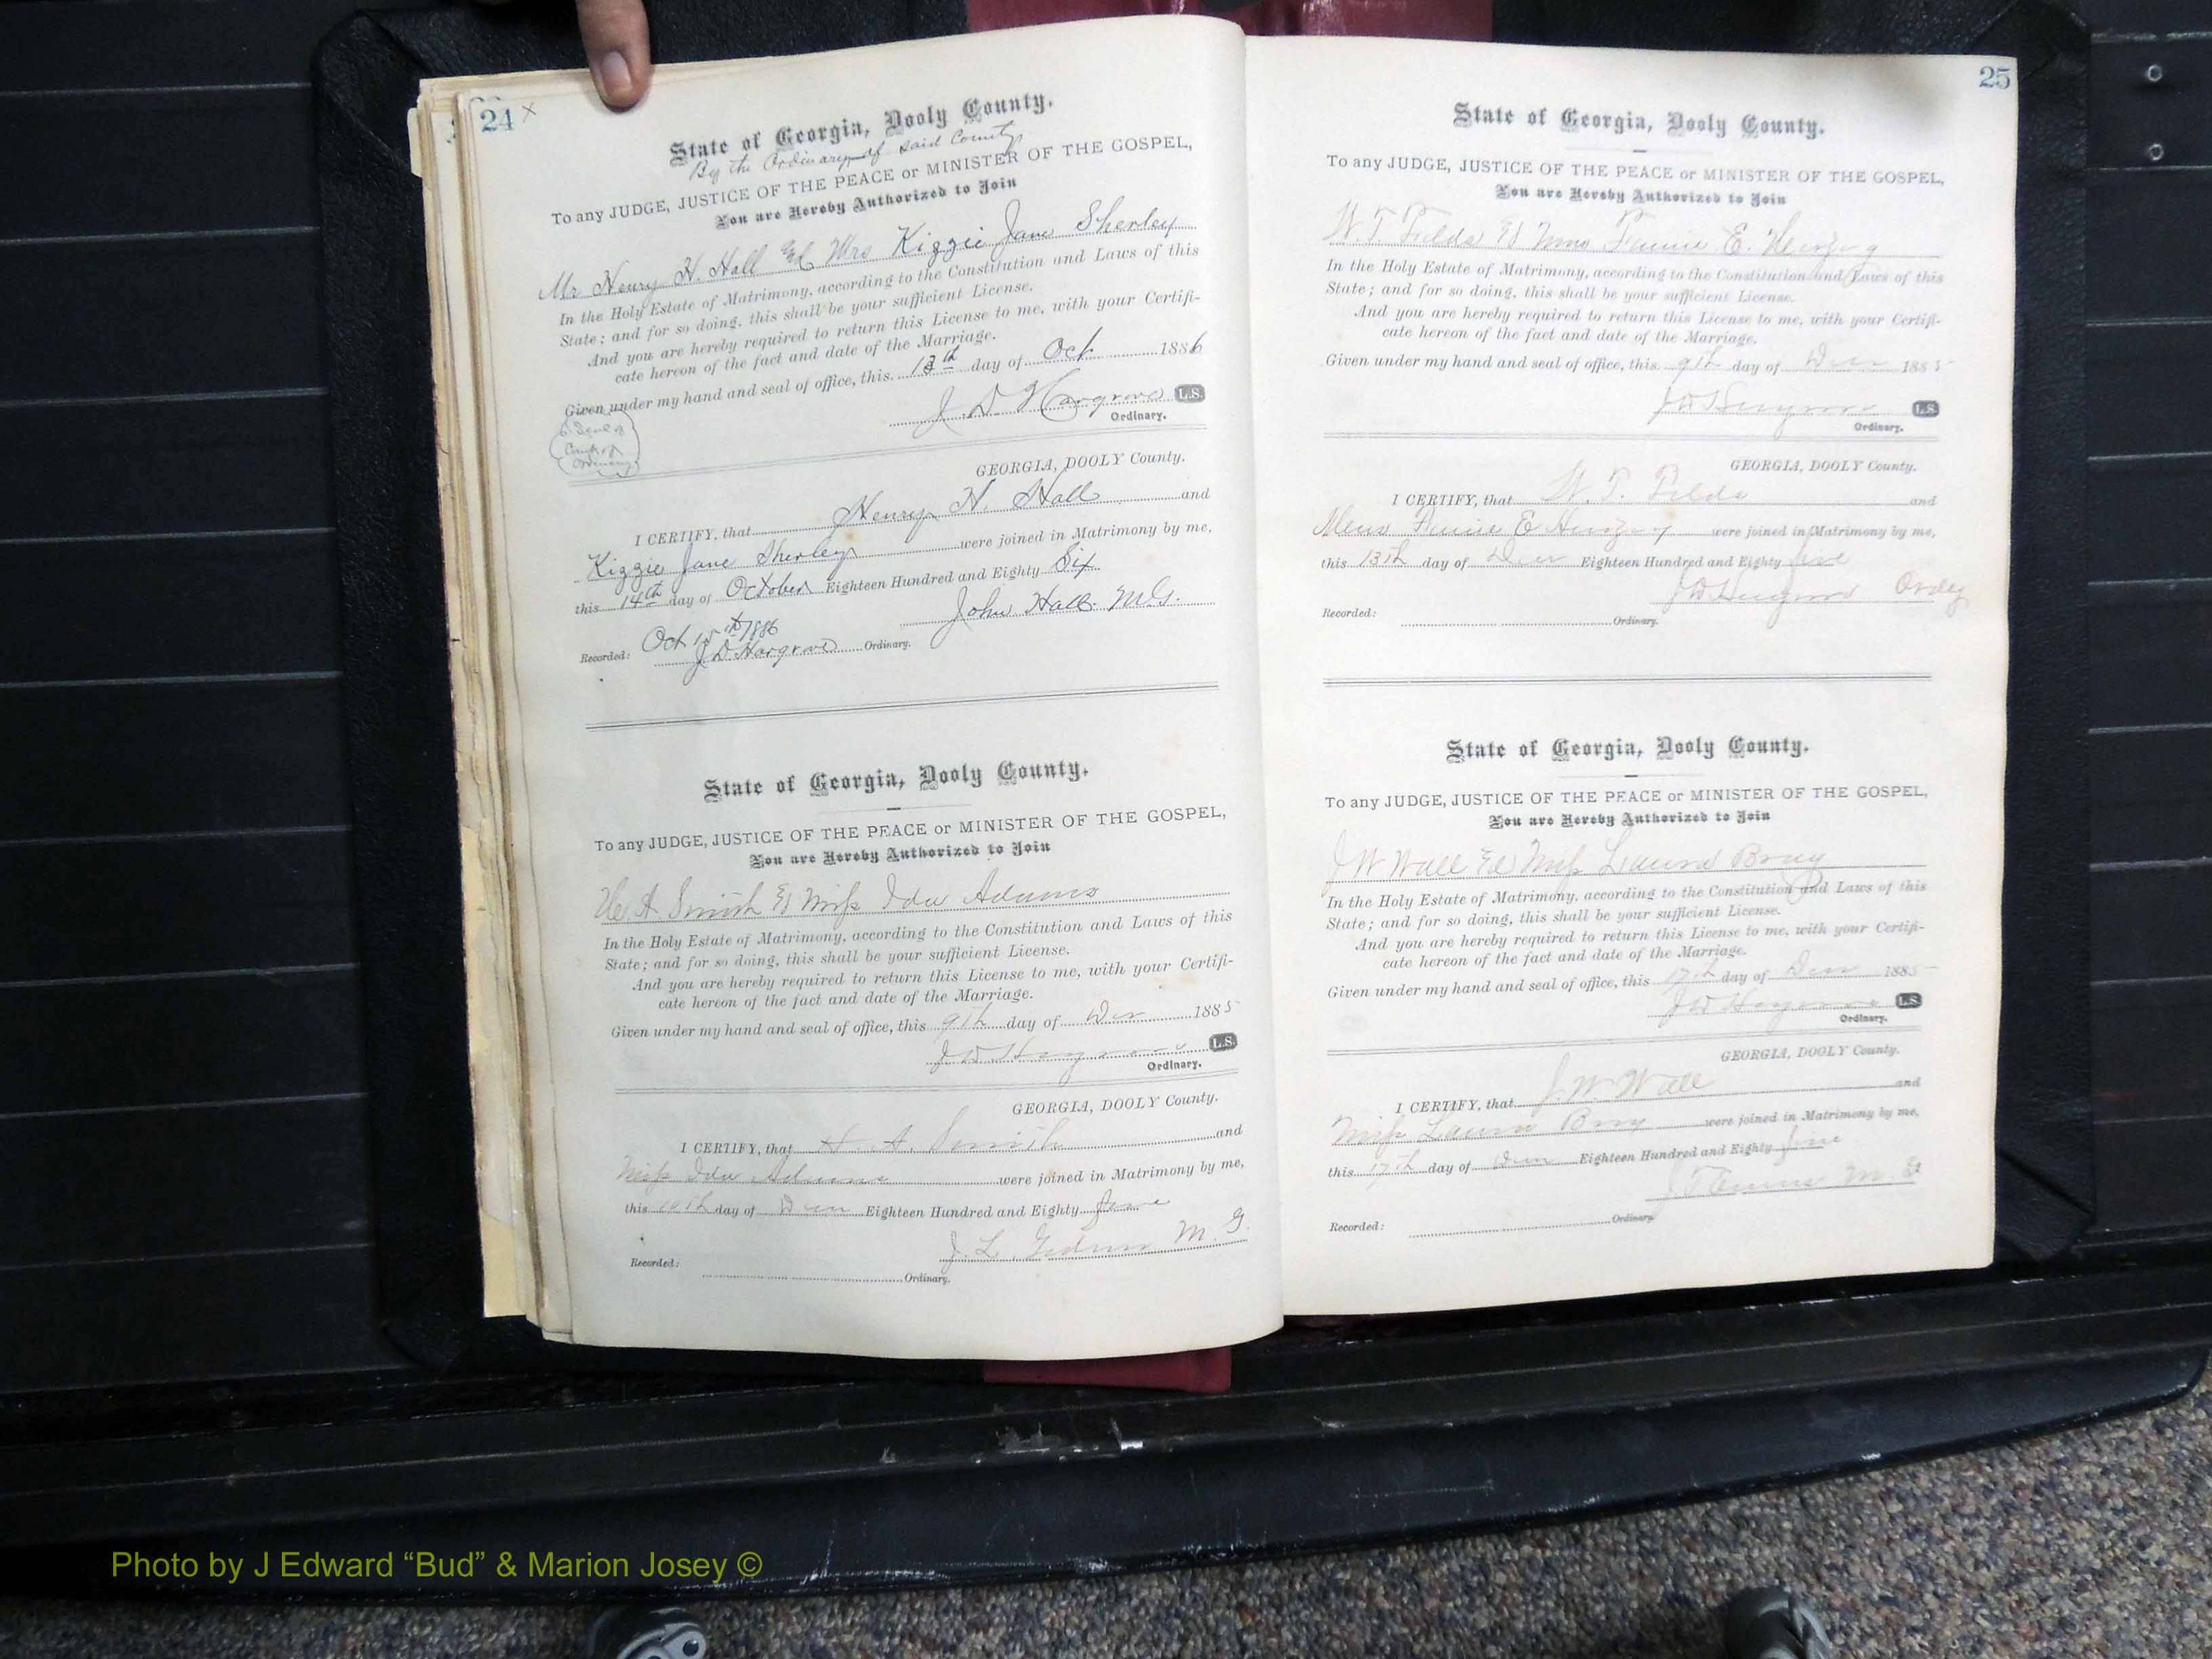 24 x
State of Georgia, Dooly County.
By the Ordinary of said County
To any JUDGE, JUSTICE OF THE PEACE or MINISTER OF THE GOSPEL,
You are Hereby Authorized to Join
Mr Henry H. Hall & Mrs Kizzie Jane Sherley
In the Holy Estate of Matrimony, according to the Constitution and Laws of this
State; and for so doing, this shall be your sufficient License.
And you are hereby required to return this License to me, with your Certifi-
cate hereon of the fact and date of the Marriage.
Given under my hand and seal of office, this 13th day of Oct 1886
J. D. Hargrove L.S.
Ordinary.
Seal of
Court of
Ordinary
GEORGIA, DOOLY County.
I CERTIFY, that Henry H. Hall and
Kizzie Jane Sherley were joined in Matrimony by me,
this 14th day of October Eighteen Hundred and Eighty Six
John Hall M.G.
Recorded: Oct 15th 1886
J D Hargrove Ordinary.
State of Georgia, Dooly County.
To any JUDGE, JUSTICE OF THE PEACE or MINISTER OF THE GOSPEL,
You are Hereby Authorized to Join
A. Smith & Miss Ida Adams
In the Holy Estate of Matrimony, according to the Constitution and Laws of this
State; and for so doing, this shall be your sufficient License.
And you are hereby required to return this License to me, with your Certifi-
cate hereon of the fact and date of the Marriage.
Given under my hand and seal of office, this 9th day of Dec 1885
J D Hargrove L.S.
Ordinary.
GEORGIA, DOOLY County.
I CERTIFY, that A. Smith and
Miss Ida Adams were joined in Matrimony by me,
this 10th day of Dec Eighteen Hundred and Eighty five
J. L. M. G.
Recorded:
Ordinary.
25
State of Georgia, Dooly County.
To any JUDGE, JUSTICE OF THE PEACE or MINISTER OF THE GOSPEL,
You are Hereby Authorized to Join
W. T. Fields & Fannie E.
In the Holy Estate of Matrimony, according to the Constitution and Laws of this
State; and for so doing, this shall be your sufficient License.
And you are hereby required to return this License to me, with your Certifi-
cate hereon of the fact and date of the Marriage.
Given under my hand and seal of office, this 9th day of Dec 1885
J D Hargrove L.S.
Ordinary.
GEORGIA, DOOLY County.
I CERTIFY, that W. T. Fields and
Fannie E were joined in Matrimony by me,
this 13th day of Dec Eighteen Hundred and Eighty five
J D Hargrove Ordy
Recorded:
Ordinary.
State of Georgia, Dooly County.
To any JUDGE, JUSTICE OF THE PEACE or MINISTER OF THE GOSPEL,
You are Hereby Authorized to Join
J W Wall & Miss Laura Bray
In the Holy Estate of Matrimony, according to the Constitution and Laws of this
State; and for so doing, this shall be your sufficient License.
And you are hereby required to return this License to me, with your Certifi-
cate hereon of the fact and date of the Marriage.
Given under my hand and seal of office, this 17th day of Dec 1885
J D Hargrove L.S.
Ordinary.
GEORGIA, DOOLY County.
I CERTIFY, that J. W. Wall and
Miss Laura Bray were joined in Matrimony by me,
this 17th day of Dec Eighteen Hundred and Eighty five
M. G
Recorded:
Ordinary.
Photo by J Edward “Bud” & Marion Josey ©